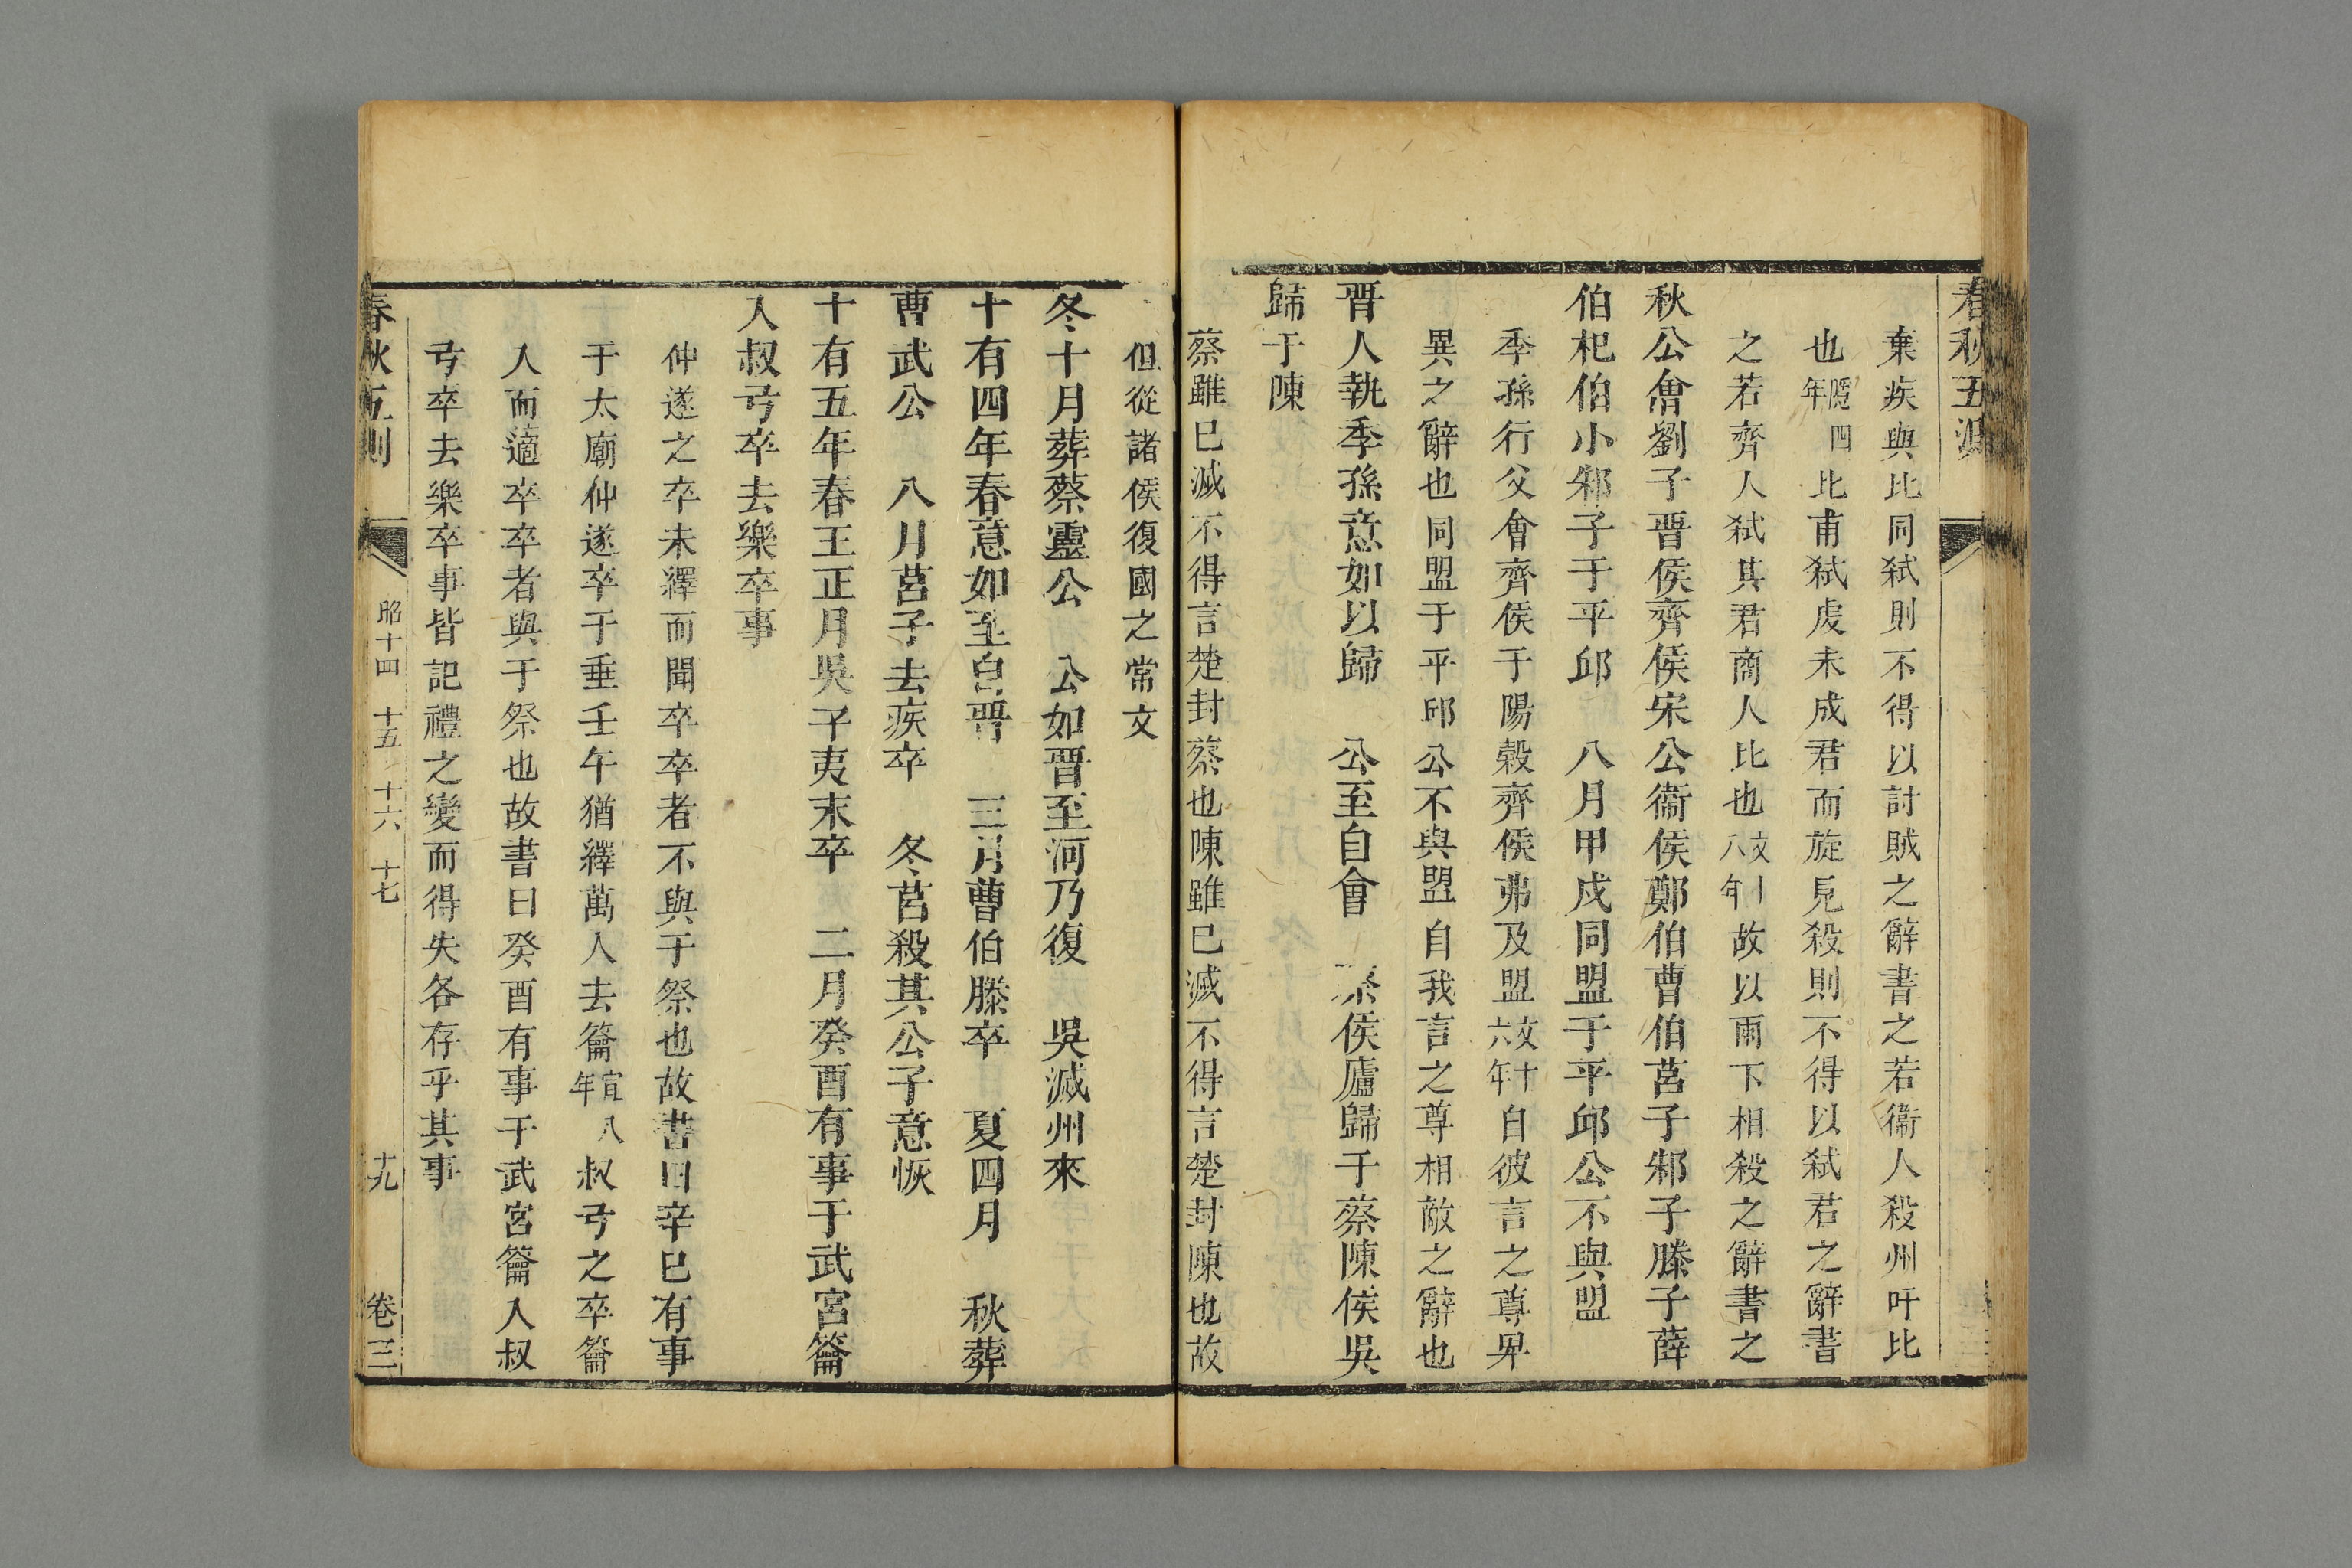 春秋五測
棄疾與比同弑則不得以討賊之辭書之若衞人殺州吁比
也隱四年比甫弑虔未成君而旋見殺則不得以弑君之辭書
之若齊人弑其君商人比也文十八年故以兩下相殺之辭書之
秋公會劉子晋侯齊侯宋公衞侯鄭伯曹伯莒子邾子滕子薛
伯杞伯小邾子于平邱　八月甲戌同盟于平邱公不與盟
季孫行父會齊侯于陽穀齊侯弗及盟文十六年自彼言之尊卑
異之辭也同盟于平邱公不與盟自我言之尊相敵之辭也
晋人執季孫意如以歸　公至自會　蔡侯廬歸于蔡陳侯吳
歸于陳
蔡雖巳滅不得言楚封蔡也陳雖巳滅不得言楚封陳也故
但從諸侯復國之常文
冬十月葬蔡靈公　公如晋至河乃復　吳滅州來
十有四年春意如至自晋　三月曹伯滕卒　夏四月　秋葬
曹武公　八月莒子去疾卒　冬莒殺其公子意恢
十有五年春王正月吳子夷末卒　二月癸酉有事于武宮籥
入叔弓卒去樂卒事
仲遂之卒未繹而聞卒卒者不與于祭也故書曰辛巳有事
于太廟仲遂卒于垂壬午猶繹萬入去籥宣八年叔弓之卒籥
入而適卒卒者與于祭也故書曰癸酉有事于武宮籥入叔
弓卒去樂卒事皆記禮之變而得失各存乎其事
春秋五測　昭十四　十五　十六　十七　十九　卷三